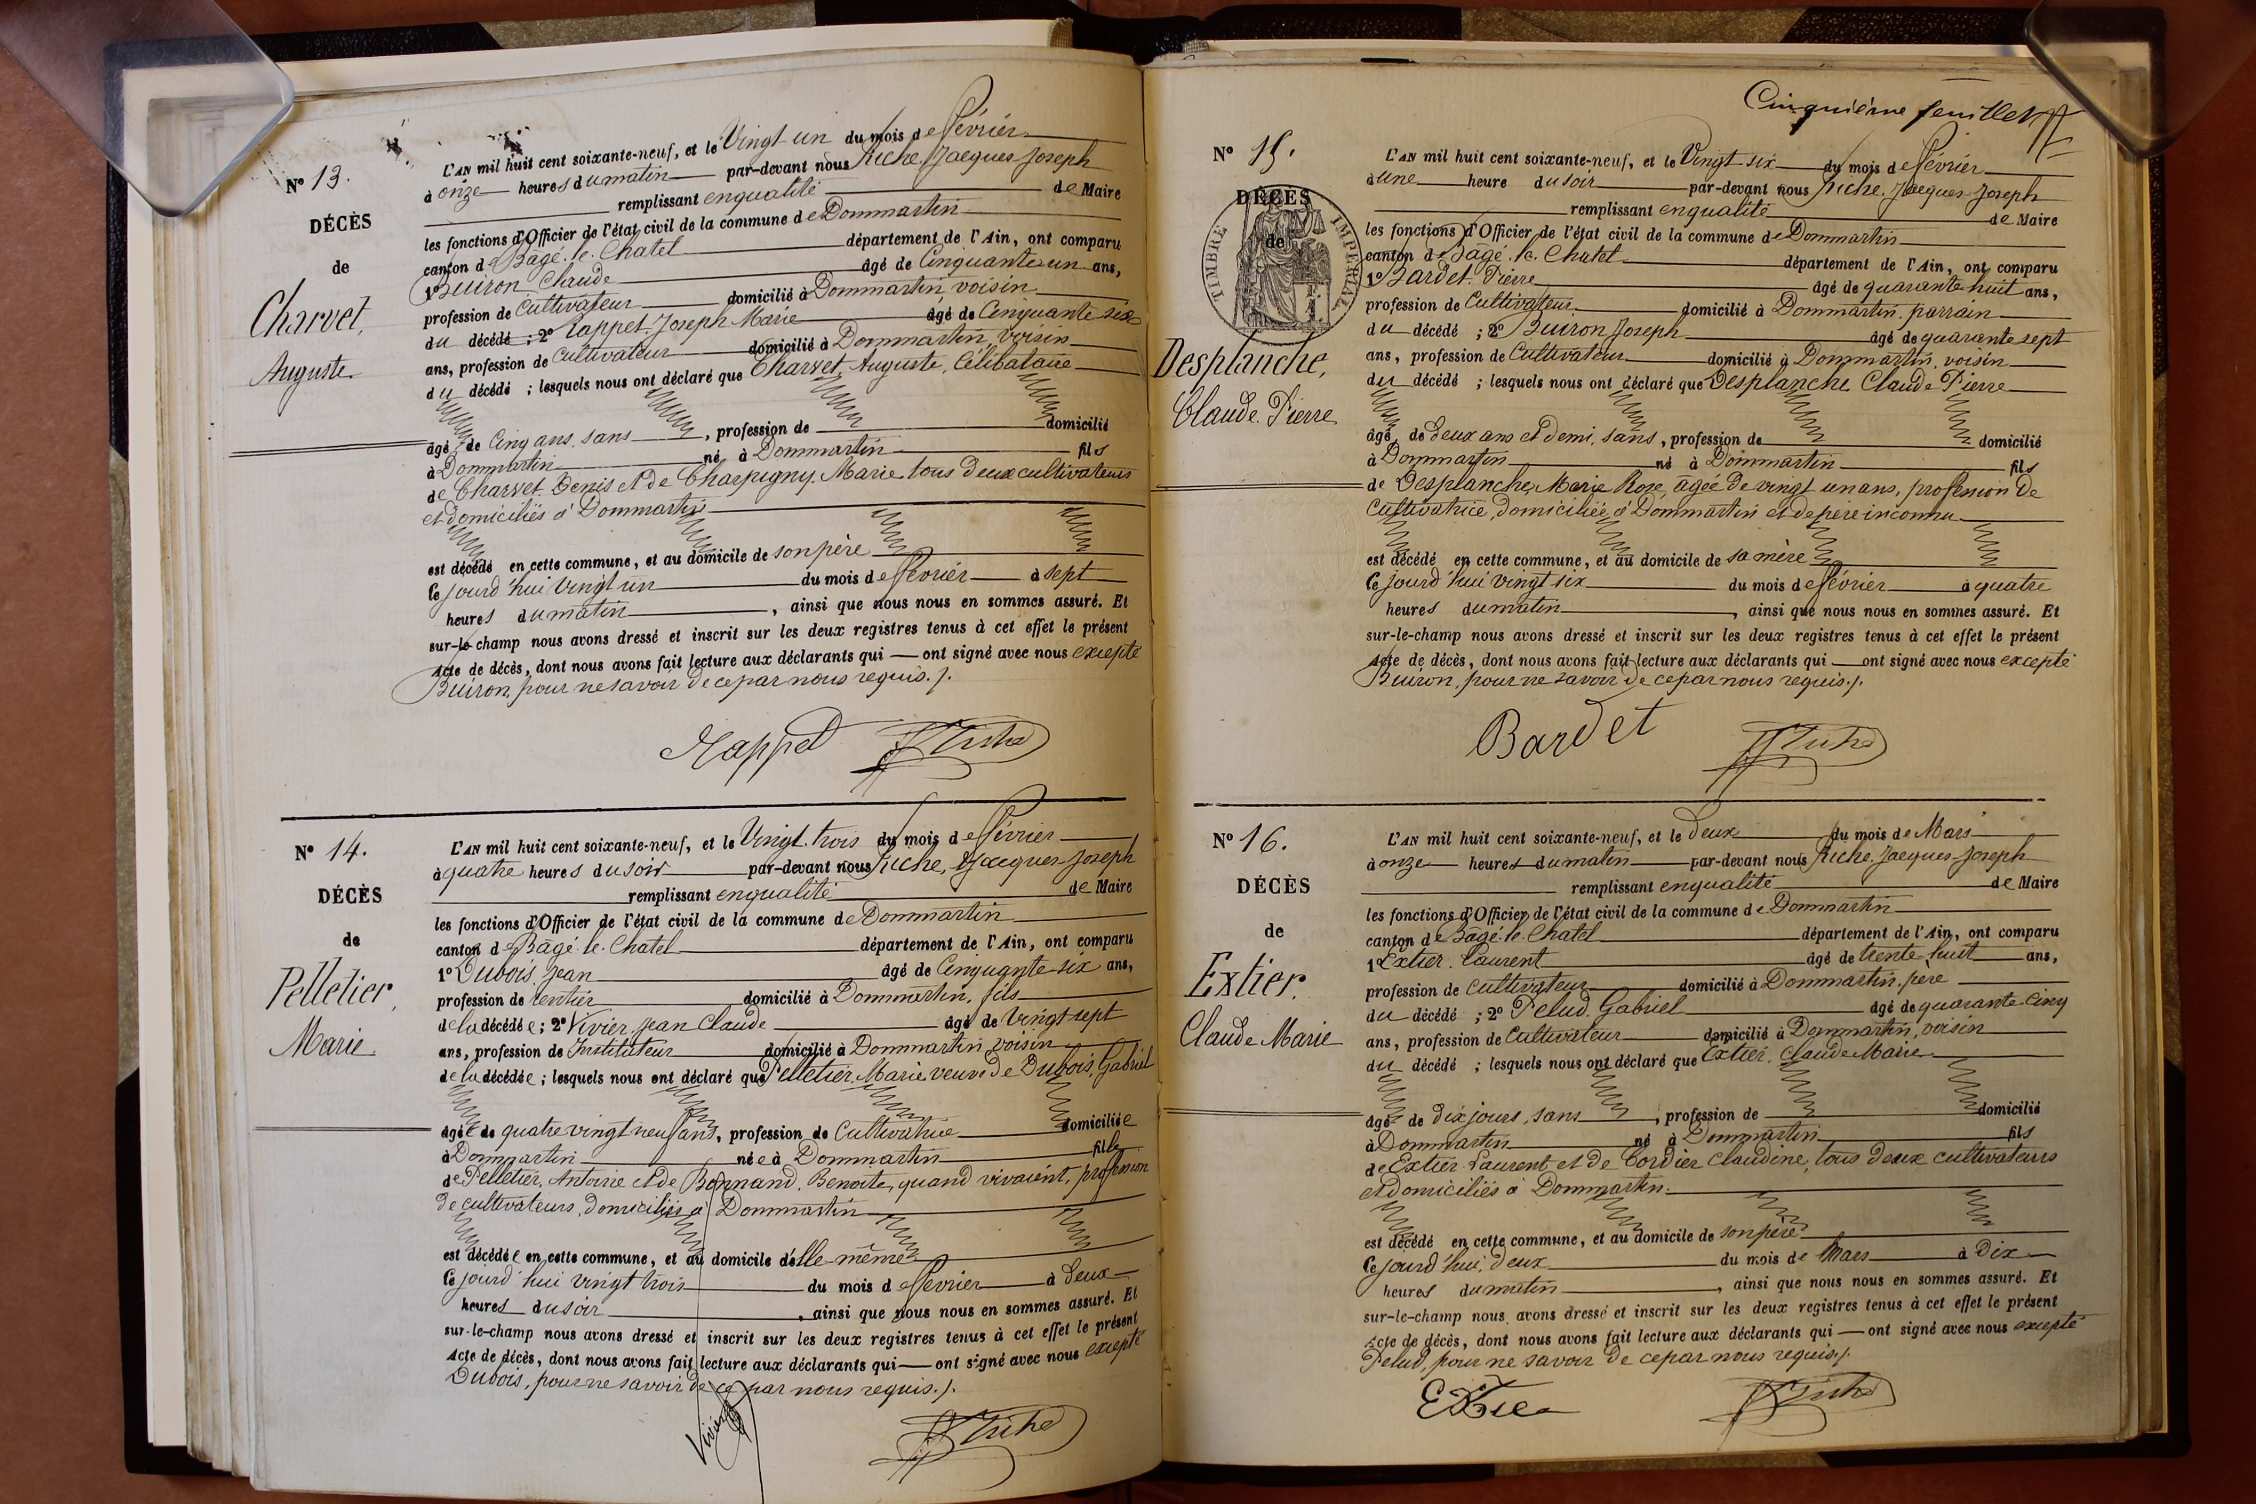 N° 13.
DÉCÈS
de
Charvet,
Auguste
L'AN mil huit cent soixante-neuf, et le Vingt un du mois de février
à onze heures du matin par-devant nous Riche, Jacques Joseph
remplissant en qualité de Maire
les fonctions d'Officier de l'état civil de la commune de Dommartin
canton de Bâgé-le-Chatel département de l'Ain, ont comparu
1° Buiron Claude âgé de Cinquante un ans,
profession de Cultivateur domicilié à Dommartin, voisin
du décédé ; 2° Rappet Joseph Marie âgé de Cinquante six
ans, profession de Cultivateur domicilié à Dommartin, voisin
du décédé ; lesquels nous ont déclaré que Charvet, Auguste, Célibataire
âgé de Cinq ans, sans , profession de domicilié
à Dommartin né à Dommartin fils
de Charvet Denis et de Charpigny Marie tous deux cultivateurs
et domiciliés à Dommartin
est décédé en cette commune, et au domicile de son père
Ce jourd'hui vingt un du mois de février à sept
heures du matin , ainsi que nous nous en sommes assuré. Et
sur-le-champ nous avons dressé et inscrit sur les deux registres tenus à cet effet le présent
Acte de décès, dont nous avons fait lecture aux déclarants qui — ont signé avec nous excepté
Buiron, pour ne savoir de ce par nous requis./.
Rappet JJ Riche
N° 14.
DÉCÈS
de
Pelletier,
Marie
L'AN mil huit cent soixante-neuf, et le Vingt trois du mois de février
à quatre heures du soir par-devant nous Riche, Jacques Joseph
remplissant en qualité de Maire
les fonctions d'Officier de l'état civil de la commune de Dommartin
canton de Bâgé-le-Chatel département de l'Ain, ont comparu
1° Dubois, Jean âgé de Cinquante six ans,
profession de rentier domicilié à Dommartin, fils
de la décédée ; 2° Vivier, Jean Claude âgé de Vingt sept
ans, profession de Instituteur domicilié à Dommartin, voisin
de la décédée ; lesquels nous ont déclaré que Pelletier, Marie veuve de Dubois, Gabriel
âgée de quatre vingt neuf ans, profession de Cultivatrice domiciliée
à Dommartin née à Dommartin fille
de Pelletier, Antoine et de Bonnand, Benoite, quand vivaient, profession
de cultivateurs, domiciliés à Dommartin
est décédée en cette commune, et au domicile d'elle-même
Ce jourd'hui vingt trois du mois de février à deux
heures du soir , ainsi que nous nous en sommes assuré. Et
sur-le-champ nous avons dressé et inscrit sur les deux registres tenus à cet effet le présent
Acte de décès, dont nous avons fait lecture aux déclarants qui — ont signé avec nous excepté
Dubois, pour ne savoir de ce par nous requis./.
Vivier JJ Riche
Cinquième feuillet
N° 15.
DÉCÈS
de
TIMBRE IMPÉRIAL
Desplanche,
Claude Pierre
L'AN mil huit cent soixante-neuf, et le Vingt six du mois de février
à une heure du soir par-devant nous Riche, Jacques Joseph
remplissant en qualité de Maire
les fonctions d'Officier de l'état civil de la commune de Dommartin
canton de Bâgé-le-Chatel département de l'Ain, ont comparu
1° Bardet Pierre âgé de quarante huit ans,
profession de Cultivateur domicilié à Dommartin, parrain
du décédé ; 2° Buiron Joseph âgé de quarante sept
ans, profession de Cultivateur domicilié à Dommartin, voisin
du décédé ; lesquels nous ont déclaré que Desplanche Claude Pierre
âgé de deux ans et demi, sans , profession de domicilié
à Dommartin né à Dommartin fils
de Desplanche, Marie Rose, agée de vingt un ans, profession de
cultivatrice, domiciliée à Dommartin et de père inconnu
est décédé en cette commune, et au domicile de sa mère
Ce jourd'hui vingt six du mois de février à quatre
heures du matin , ainsi que nous nous en sommes assuré. Et
sur-le-champ nous avons dressé et inscrit sur les deux registres tenus à cet effet le présent
Acte de décès, dont nous avons fait lecture aux déclarants qui — ont signé avec nous excepté
Buiron, pour ne savoir de ce par nous requis./.
Bardet JJ Riche
N° 16.
DÉCÈS
de
Extier,
Claude Marie
L'AN mil huit cent soixante-neuf, et le deux du mois de Mars
à onze heures du matin par-devant nous Riche, Jacques Joseph
remplissant en qualité de Maire
les fonctions d'Officier de l'état civil de la commune de Dommartin
canton de Bâgé-le-Chatel département de l'Ain, ont comparu
1° Extier, Laurent âgé de trente huit ans,
profession de Cultivateur domicilié à Dommartin, père
du décédé ; 2° Pelud, Gabriel âgé de quarante-cinq
ans, profession de Cultivateur domicilié à Dommartin, voisin
du décédé ; lesquels nous ont déclaré que Extier, Claude Marie
âgé de dix jours, sans , profession de domicilié
à Dommartin né à Dommartin fils
de Extier Laurent et de Cordier Claudine, tous deux cultivateurs
et domiciliés à Dommartin.
est décédé en cette commune, et au domicile de son père
Ce jourd'hui, deux du mois de Mars à dix
heures du matin , ainsi que nous nous en sommes assuré. Et
sur-le-champ nous avons dressé et inscrit sur les deux registres tenus à cet effet le présent
Acte de décès, dont nous avons fait lecture aux déclarants qui — ont signé avec nous excepté
Pelud, pour ne savoir de ce par nous requis./.
JJ Riche